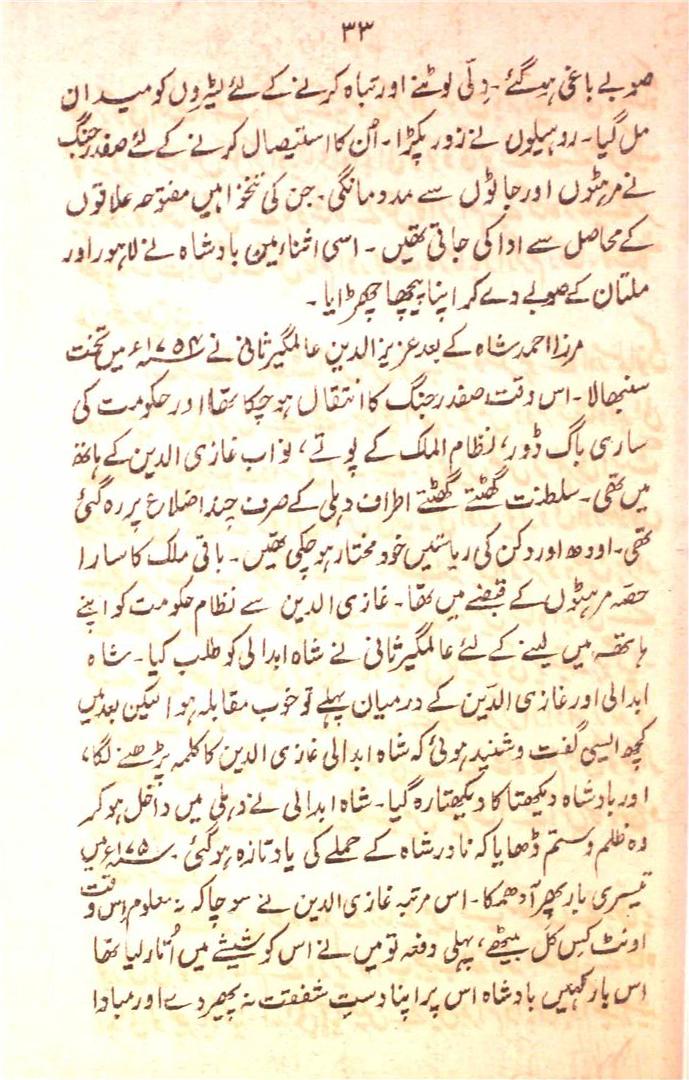 ۳۳
صوبے باغی ہو گئے۔ دِلّی لوٹنے اور تباہ کرنے کے لئے لٹیروں کو میدان
مل گیا۔ روہیلوں نے زور پکڑا۔ اُن کا استیصال کرنے کے لئے صفدر جنگ
نے مرہٹوں اور جاٹوں سے مدد مانگی۔ جن کی تنخواہیں مفتوحہ علاقوں
کے محاصل سے ادا کی جاتی تھیں۔ اسی اثناء میں بادشاہ نے لاہور اور
ملتان کے صوبے دے کر اپنا پیچھا چھڑایا۔
مرزا احمد شاہ کے بعد عزیز الدین عالمگیر ثانی نے ۱۷۵۴ء میں تخت
سنبھالا۔ اس وقت صفدر جنگ کا انتقال ہو چکا تھا اور حکومت کی
ساری باگ ڈور، نظام الملک کے پوتے، نواب غازی الدین کے ہاتھ
میں تھی۔ سلطنت گھٹتے گھٹتے اطراف دہلی کے صرف چند اضلاع پر رہ گئی
تھی۔ اودھ اور دکن کی ریاستیں خود مختار ہو چکی تھیں۔ باقی ملک کا سارا
حصّہ مرہٹوں کے قبضے میں تھا۔ غازی الدین سے نظام حکومت کو اپنے
ہاتھ میں لینے کے لئے عالمگیر ثانی نے شاہ ابدالی کو طلب کیا۔ شاہ
ابدالی اور غازی الدین کے درمیان پہلے تو خوب مقابلہ ہوا لیکن بعد میں
کچھ ایسی گفت و شنید ہوئی کہ شاہ ابدالی غازی الدین کا کلمہ پڑھنے لگا،
اور بادشاہ دیکھتا کا دیکھتا رہ گیا۔ شاہ ابدالی نے دہلی میں داخل ہو کر
وہ ظلم و ستم ڈھایا کہ نادر شاہ کے حملے کی یاد تازہ ہو گئی۔ میں
تیسری بار پھر آ دھمکا۔ اس مرتبہ غازی الدین نے سوچا کہ نہ معلوم اِس وقت
اونٹ کس کَل بیٹھے، پہلی دفعہ تو میں نے اس کو شیشے میں اُتار لیا تھا
اس بار کہیں بادشاہ اس پر اپنا دستِ شفقت نہ پھیر دے اور مبادا